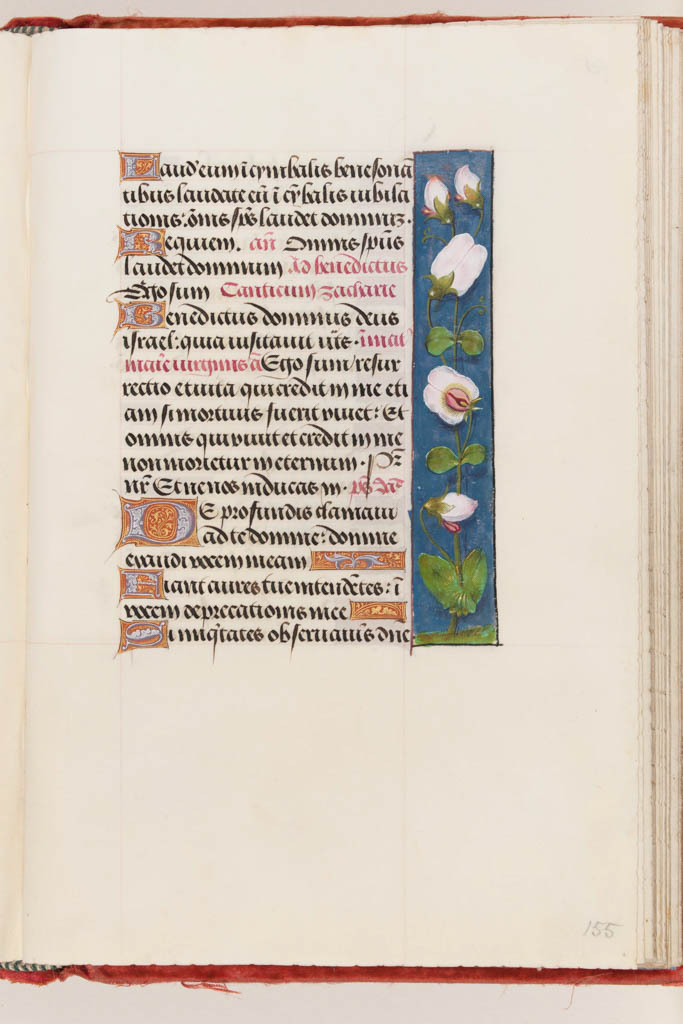 Laud'eum ĩ cymbalis benesonã
tibus laudate eũ ĩ cỹbalis iubila
tionis: õmis sp̃s laudet dominum.
Requiem. añ Omnis sp̃us
laudet dominum Ad benedictus
Ego sum Canticum zacharie
Benedictus dominus deus
israel: quia uisitauit
Ego sum resur
rectio et uita qui credit in me eti
am si mortuus fuerit viuet: Et
omnis qui viuit et credit in me
non morietur in eternum. Pr̃
nr̃ Et ne nos inducas in. ps̃ dd̃
De profundis clamaui
ad te domine: domine
exaudi vocem meam
Fiant aures tue intendẽtes: ĩ
vocem deprecationis mee
Si iniq̃tates obseruaueris dñe
155